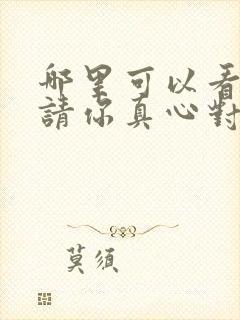 哪里可以看
請你真心對
莫須